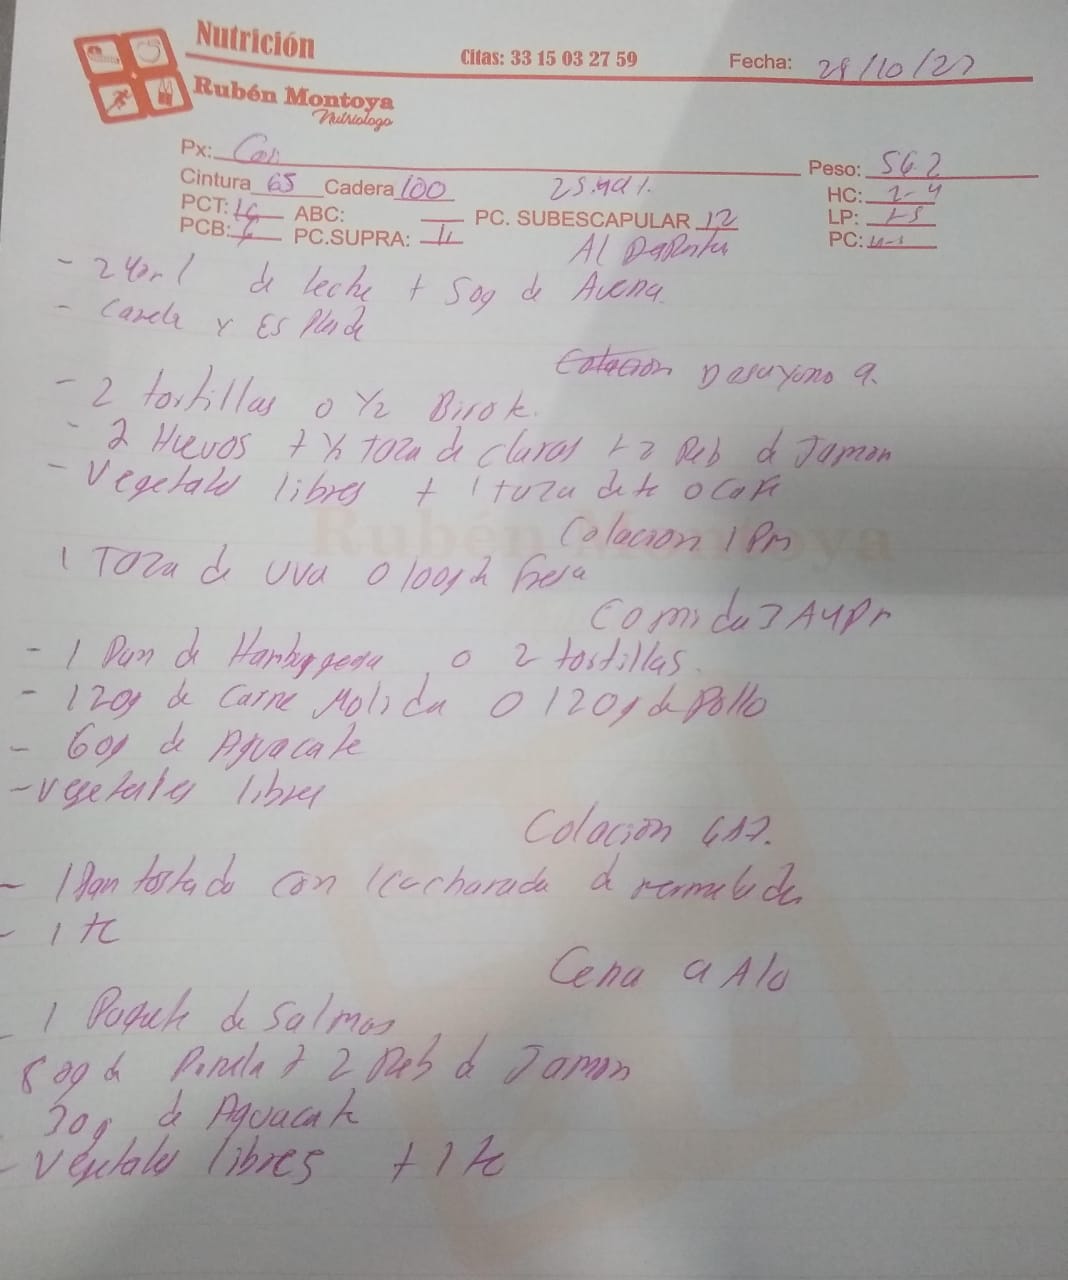 Nutrición
Citas: 33 15 03 27 59
Fecha: 29/10/27
Rubén Montoya
Nutriologo
Px:
Peso: 56.2
Cintura 65 Cadera 100
HC: 2-4
PCT: 16 ABC: PC. SUBESCAPULAR 12
LP: 1-5
PCB: PC.SUPRA: 11
PC:
Al Despertar
- 240ml de leche + 50g de Avena
- Canela y Esplenda
Colacion Desayuno 9.
- 2 tortillas o 1/2 Birote.
- 2 Huevos + 1/2 Taza de claras + 2 Reb d Jamon
- Vegetales libres + 1 taza de te o Cafe
Rubén Montoya
Colacion 1 Pm
1 Taza de uva o 100g d fresa
Comida 3 A 4 Pm
- 1 Pan de Hamburgesa o 2 tortillas.
- 120g de Carne Molida o 120g de Pollo
- 60g de Aguacate
- vegetales libres
Colacion 6 A 7.
- 1 Pan tostado con 1 cucharada d mermelada
- 1 te
Cena 9 A 10
- 1 Paquete de Salmas
80g d Panela + 2 Reb d Jamon
30g de Aguacate
- Vegetales libres + 1 te